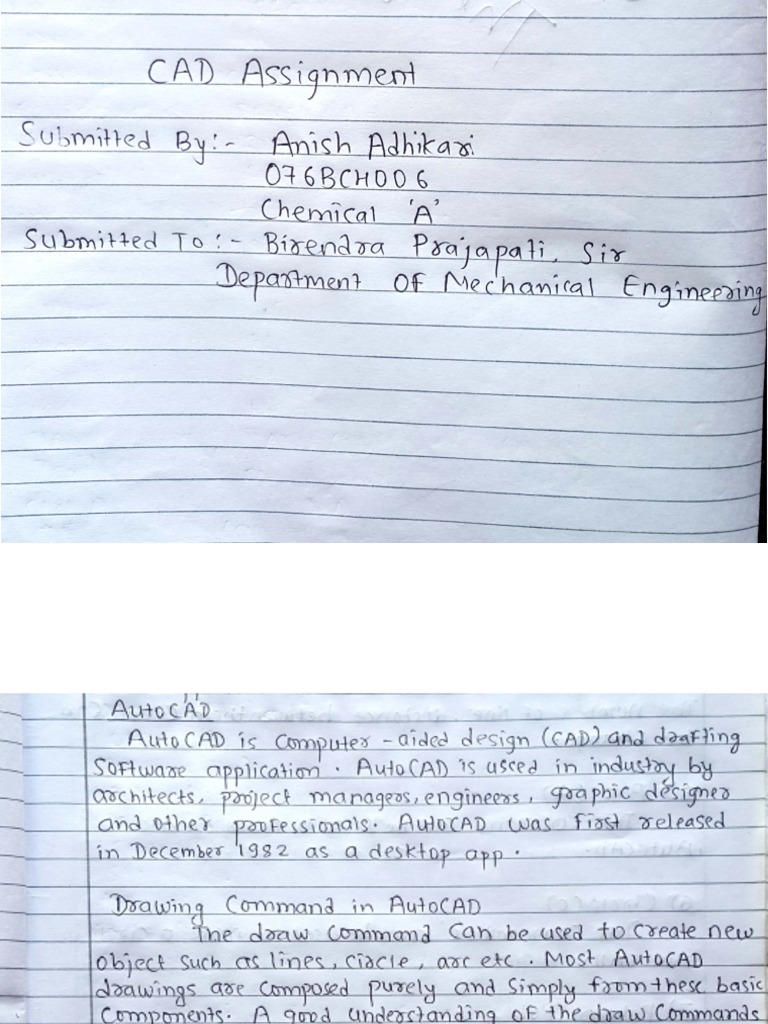 CAD Assignment
Submitted By:- Anish Adhikari
076BCH006
Chemical 'A'
Submitted To:- Birendra Prajapati, Sir
Department Of Mechanical Engineering
AutoCAD
AutoCAD is computer-aided design (CAD) and drafting
software application. AutoCAD is used in industry by
architects, project managers, engineers, graphic designer
and other professionals. AutoCAD was first released
in December 1982 as a desktop app.
Drawing Command in AutoCAD
The draw command can be used to create new
object such as lines, circle, arc etc. Most AutoCAD
drawings are composed purely and simply from these basic
components. A good understanding of the draw commands